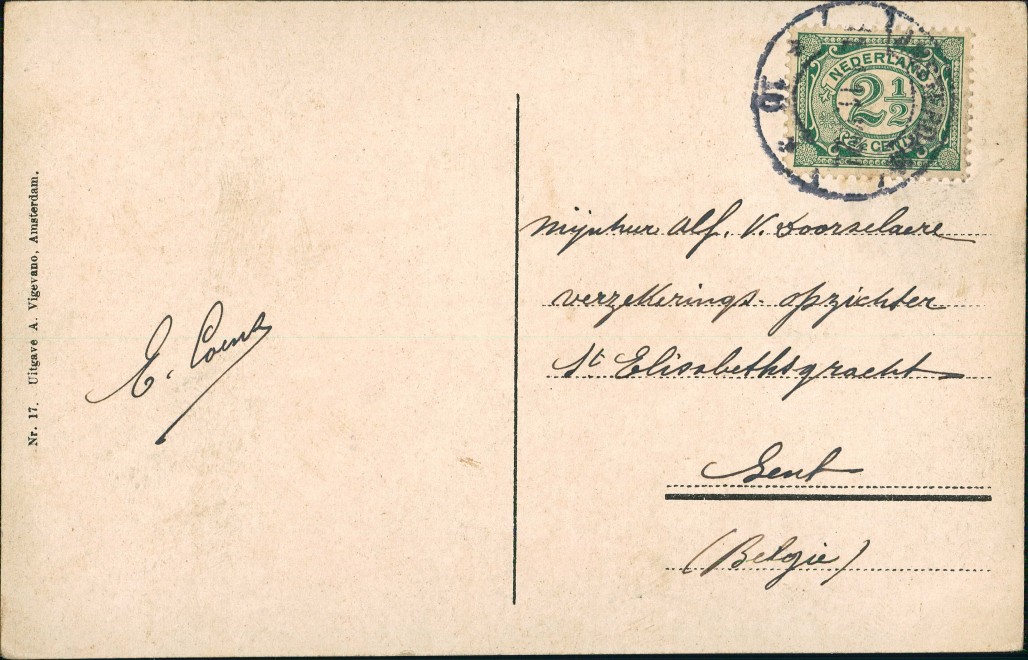 Nr. 17. Uitgave A. Vigevano, Amsterdam.
NEDERLAND
2 1/2
2 1/2 CENT
10
Mijnheer Alf. V. Doorselaere
verzekerings-opzichter
St Elisabethsgracht
Gent
(Belgie)
E.